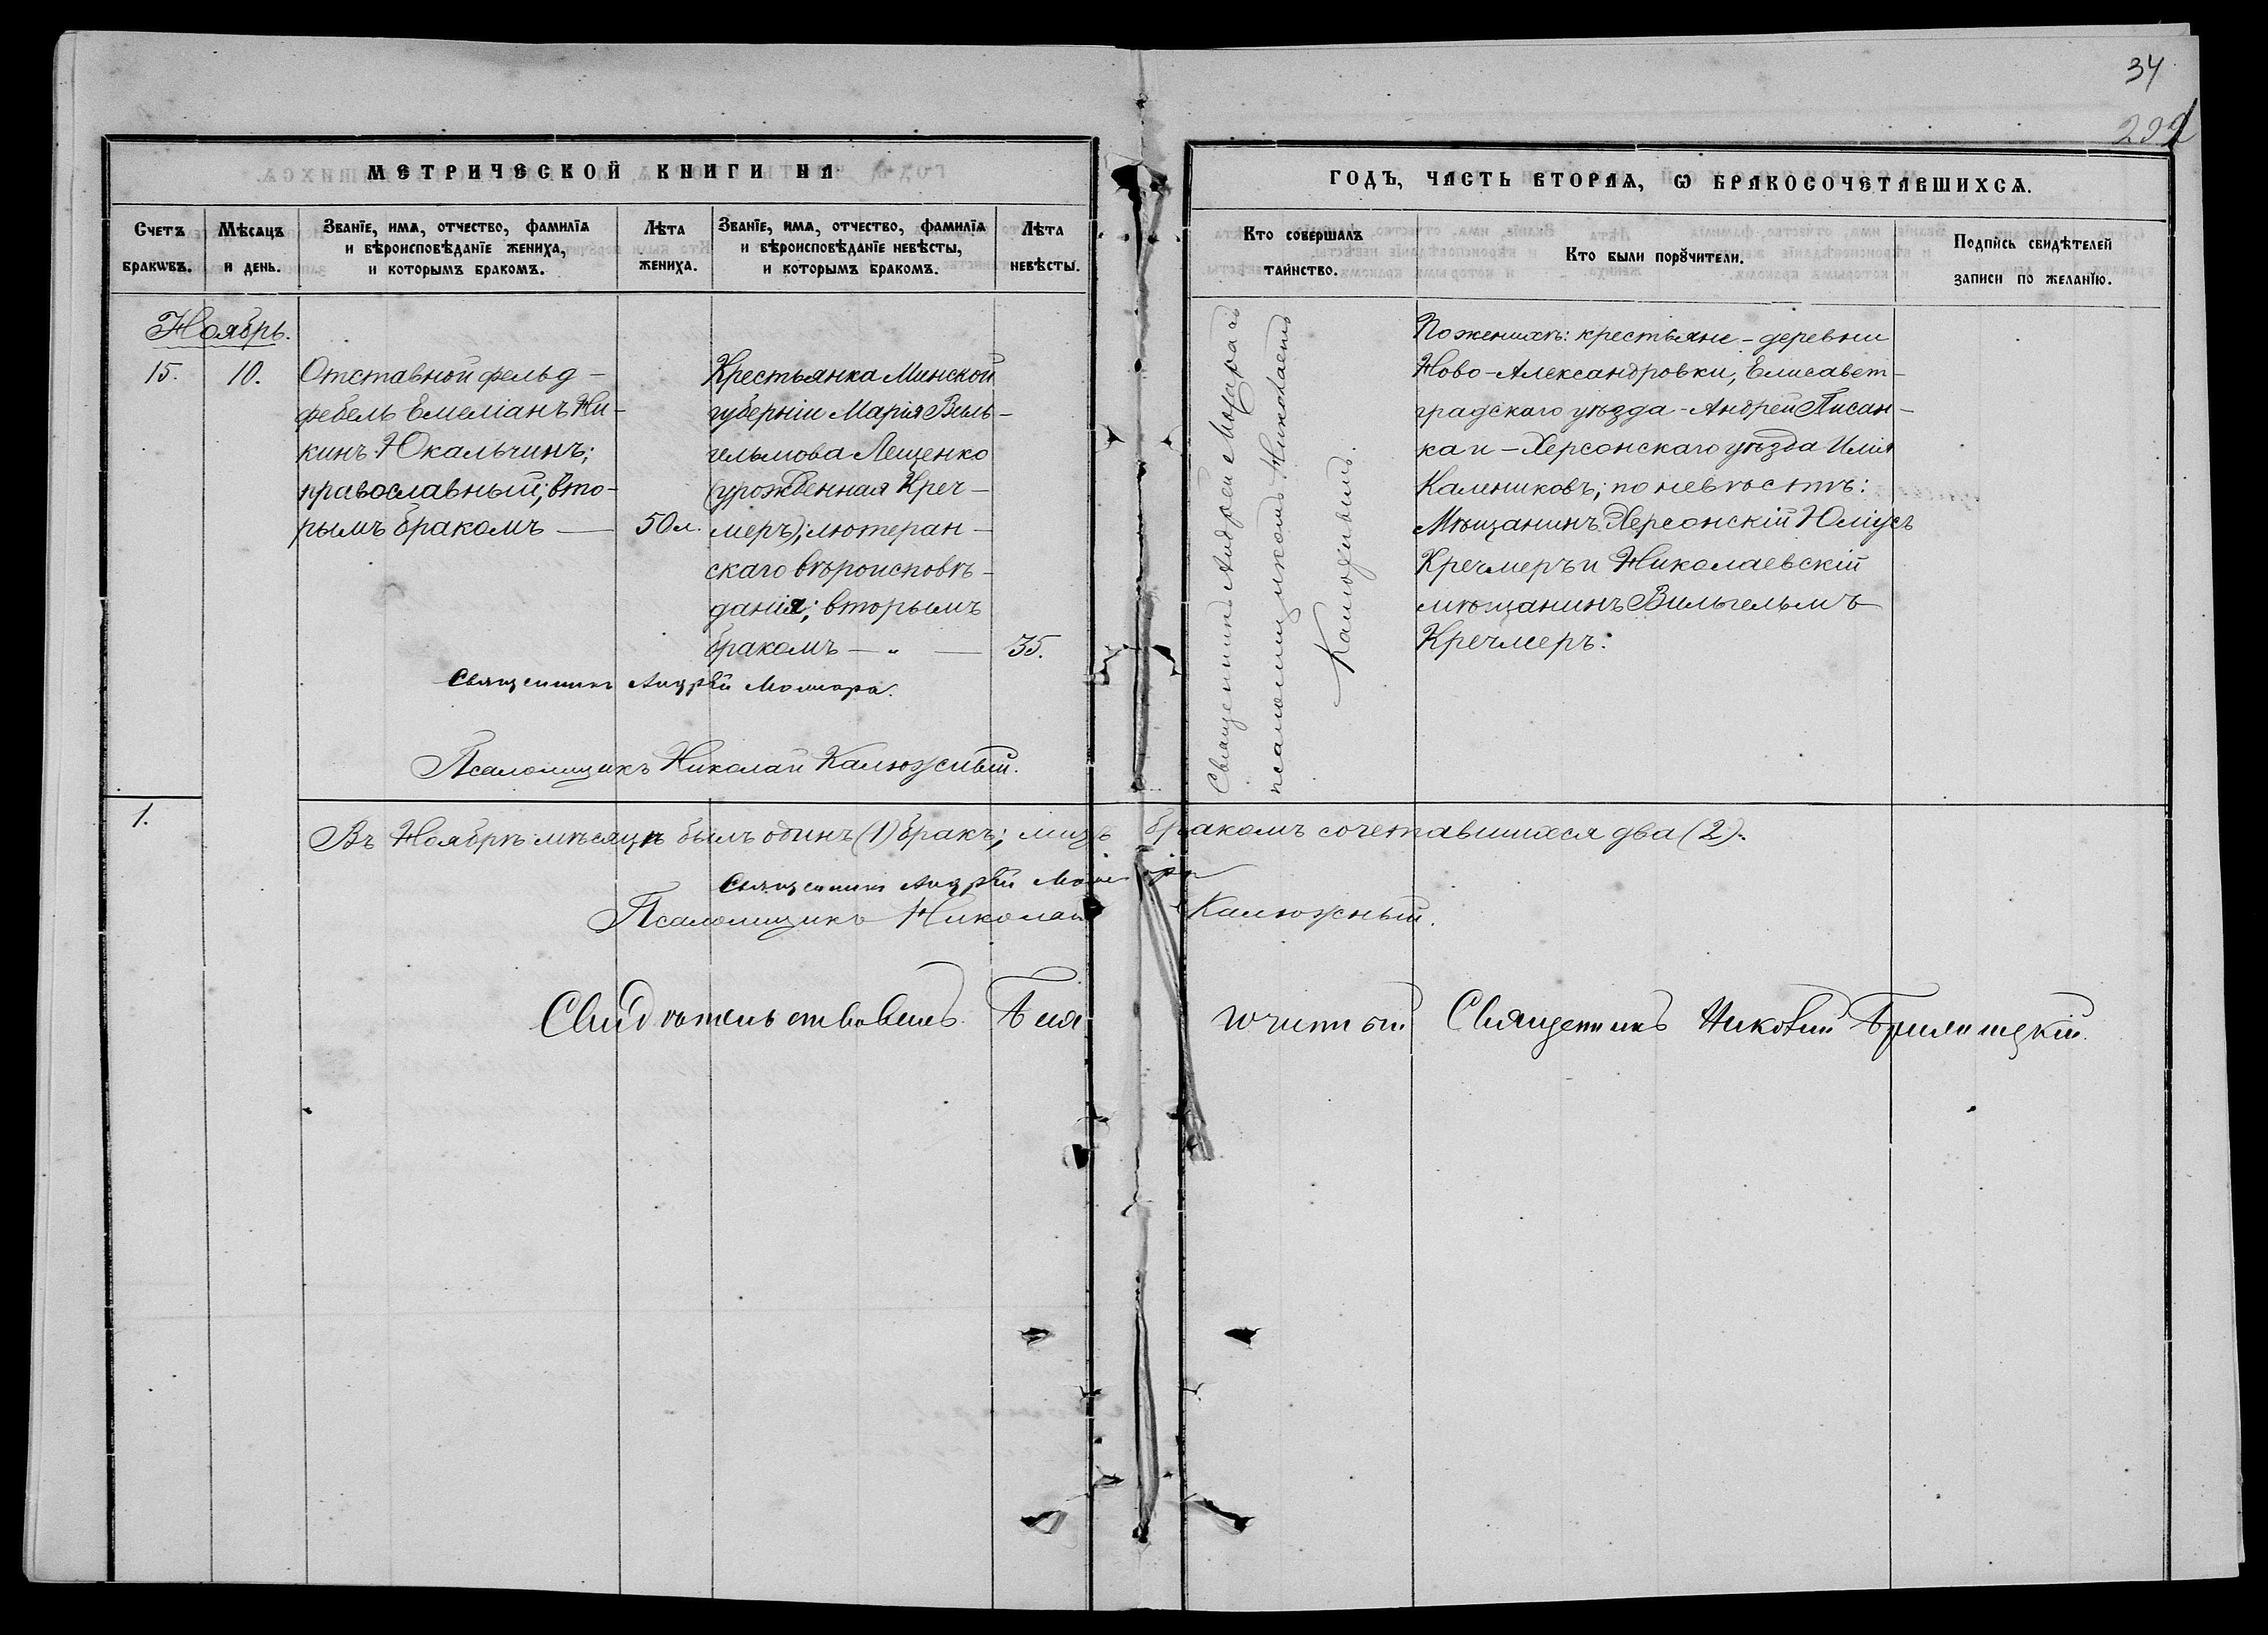 34
МЕТРИЧЕСКОЙ КНИГИ НА
ГОДЪ, ЧАСТЬ ВТОРАѦ, Ѡ БРАКОСОЧЕТАВШИХСѦ.
Счетъ бракѡвъ.
Мѣсѧцъ и день.
Званїе, имѧ, отчество, фамилїѧ
и вѣроисповѣданїе жениха,
и которымъ бракомъ.
Лѣта
жениха.
Званїе, имѧ, отчество, фамилїѧ
и вѣроисповѣданїе невѣсты,
и которымъ бракомъ.
Лѣта
невѣсты.
Кто совершалъ
таинство.
Кто были порꙋчители.
Подпись свидѣтелей
записи по желанїю.
Ноябрь.
15.
10.
Отставной фельд-
фебель Емеліанъ Ни-
кинъ Юкальчинъ;
православный; вто-
рымъ бракомъ —
50 л.
Крестьянка Минской
губерніи Марія Виль-
гельмова Лещенко
(урожденная Креч-
меръ); лютеран-
скаго вѣроисповѣ-
данія; вторымъ
бракомъ — „ —
35.
Священникъ Андрей съ
псаломщикомъ Николаемъ
Калюжнымъ.
По женихѣ: крестьяне - деревни
Ново-Александровки, Елисавет-
градскаго уѣзда - Андрей Писан-
ка и - Херсонскаго уѣзда Илія
Калениковъ; по невѣстѣ:
Мѣщанинъ Херсонскій Юліусъ
Кречмеръ и Николаевскій
мѣщанинъ Вильгельмъ
Кречмеръ.
Священникъ Андрей
Псаломщикъ Николай Калюжный.
1.
Въ Ноябрѣ мѣсяцѣ былъ одинъ (1) бракъ; лицъ бракомъ сочетавшихся два (2).
Священникъ Андрей
Псаломщикъ Николай Калюжный.
Свидѣтельствовалъ Благочинный Священникъ